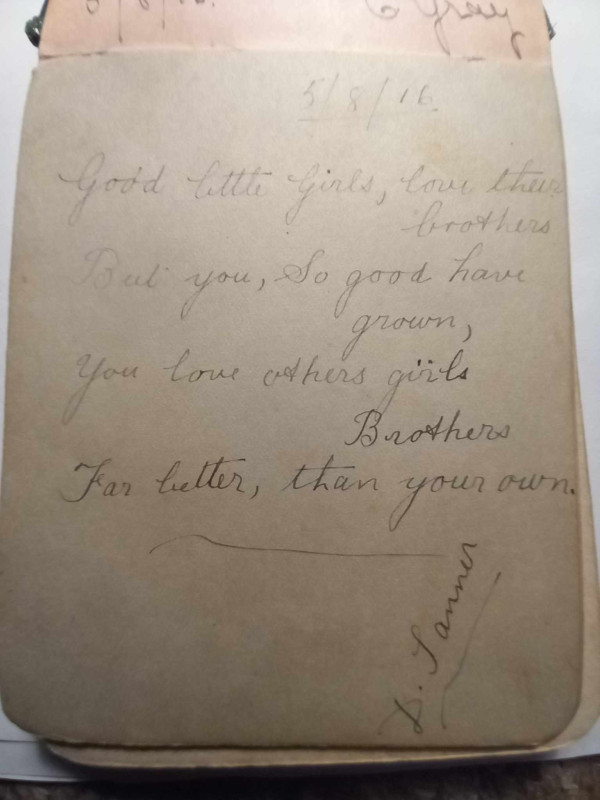 5/8/16.
C Gray
5/8/16.
Good little Girls, love their
brothers
But you, So good have
grown,
You love others girls
Brothers
Far better, than your own.